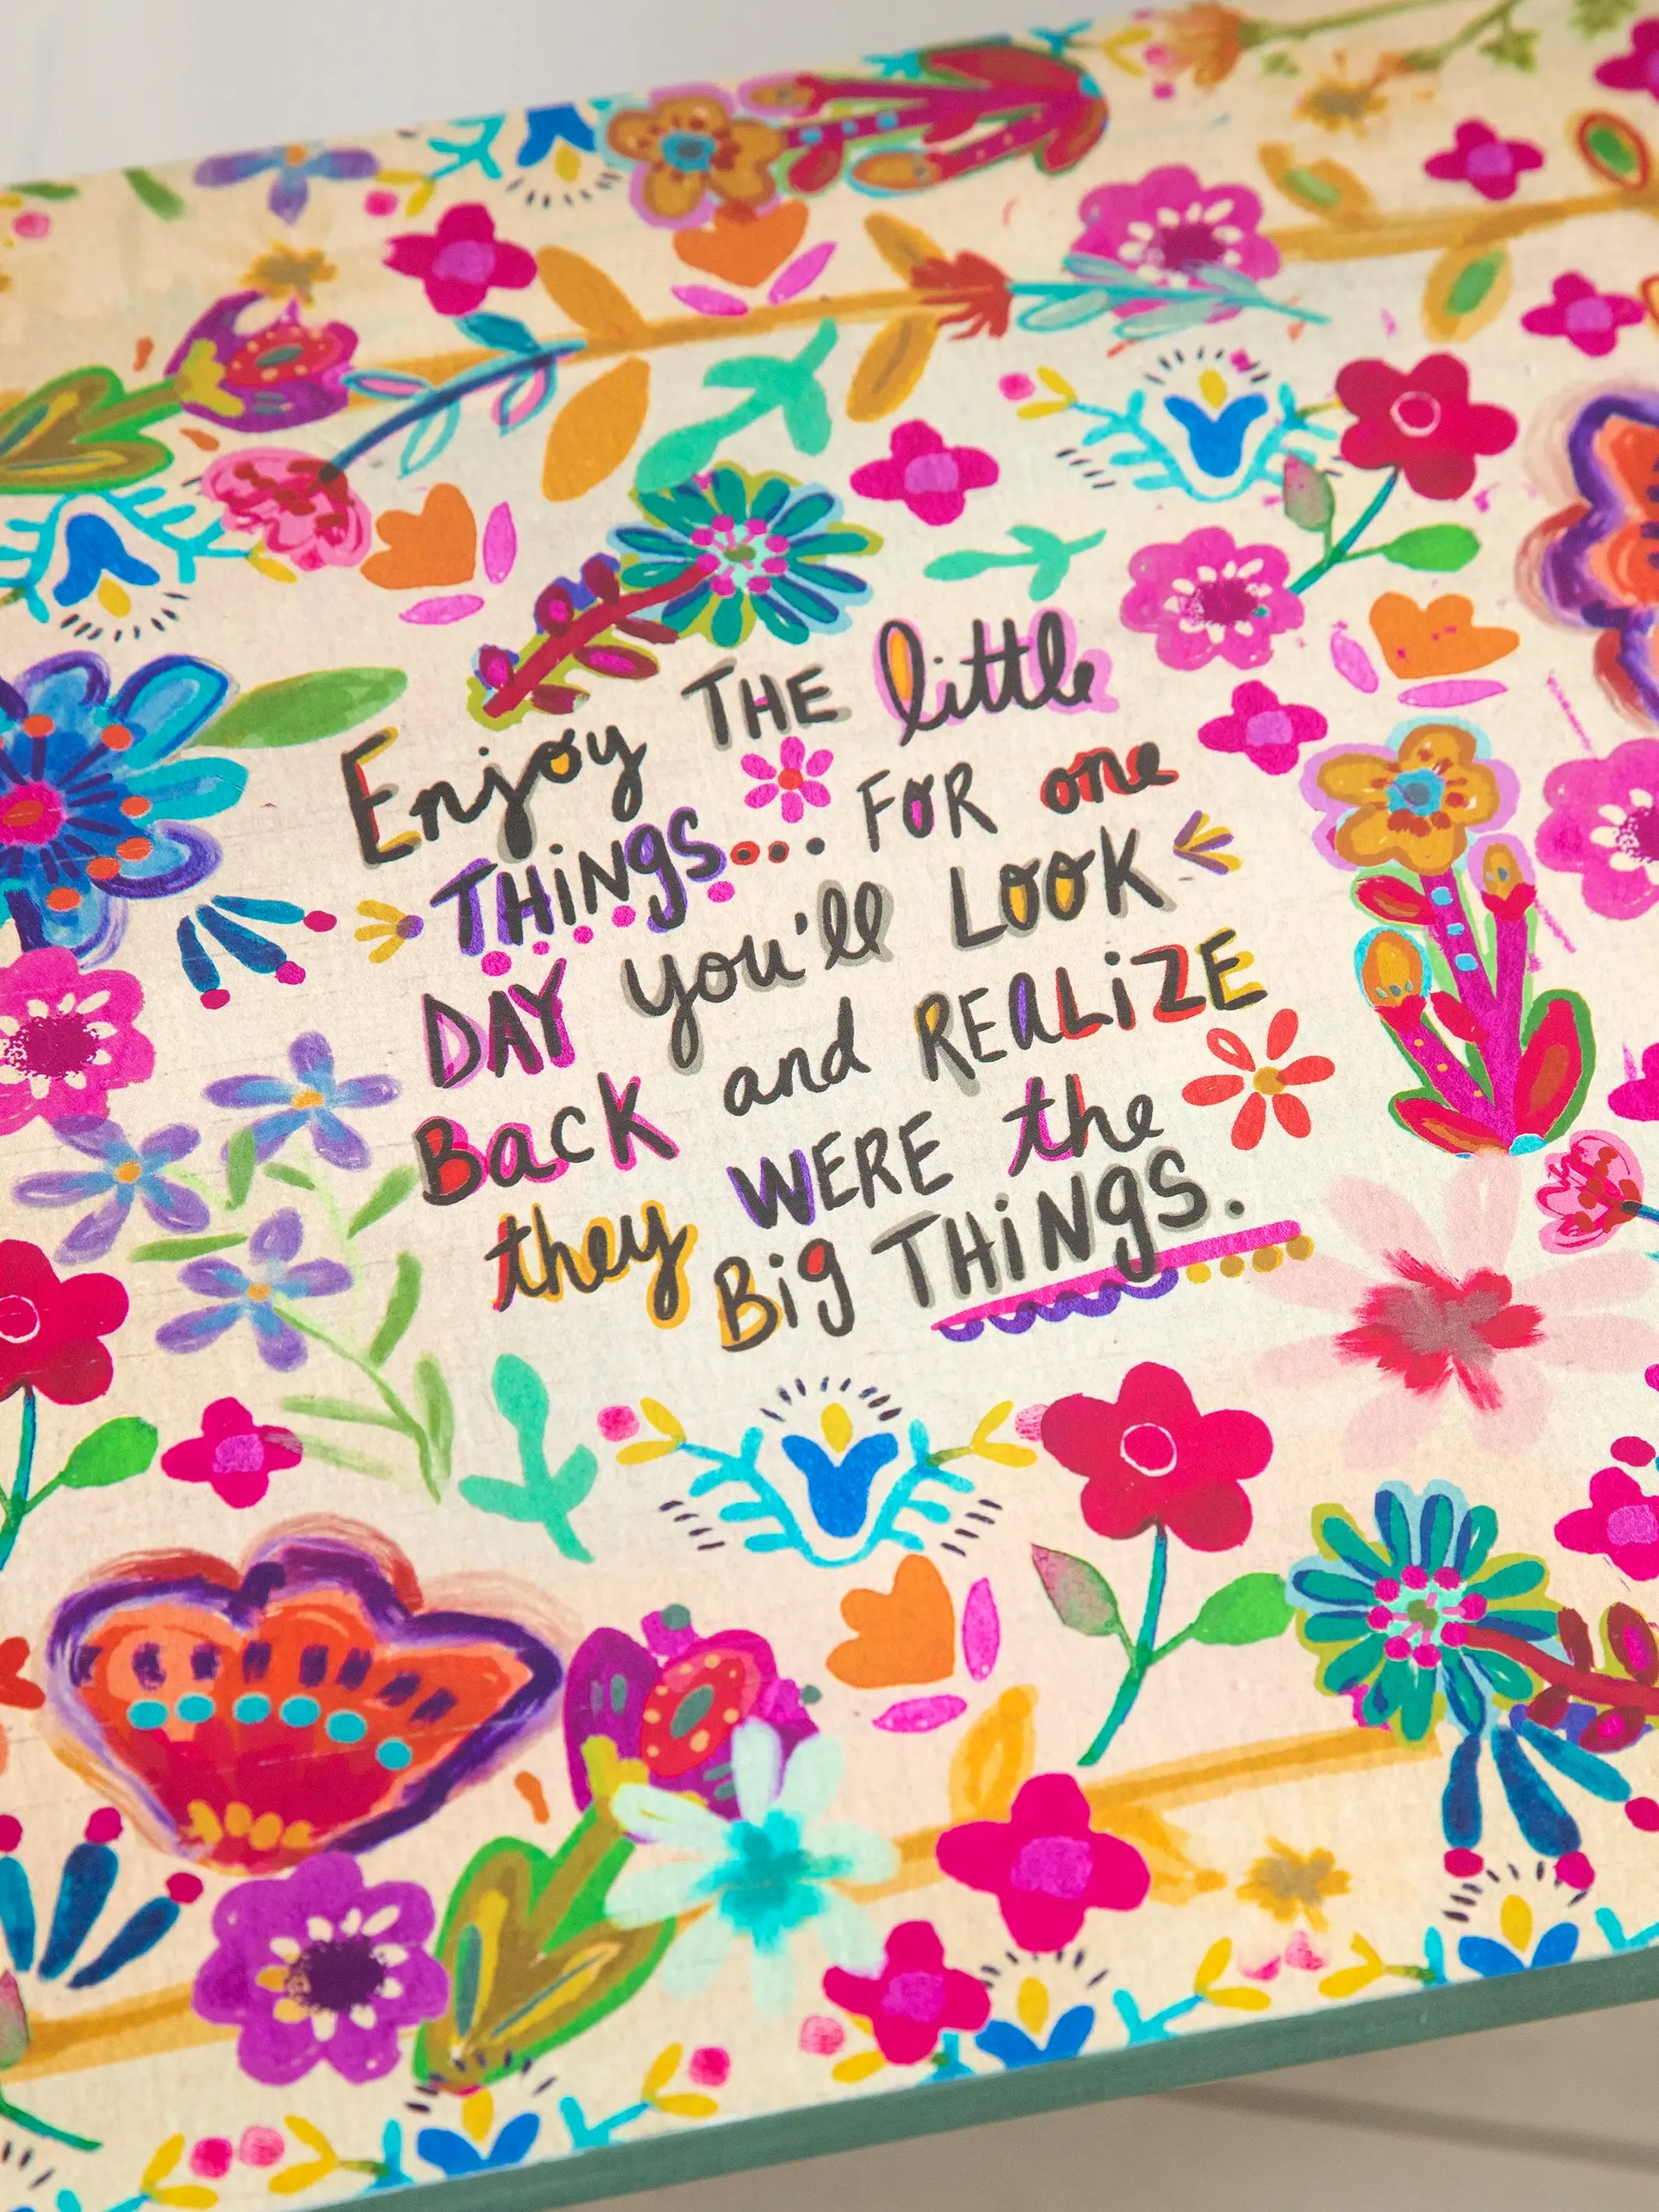 Enjoy THE little
THiNgS... FOR one
DAY you'll LOOK
Back and REaLiZE
they WERE the
Big THiNgS.